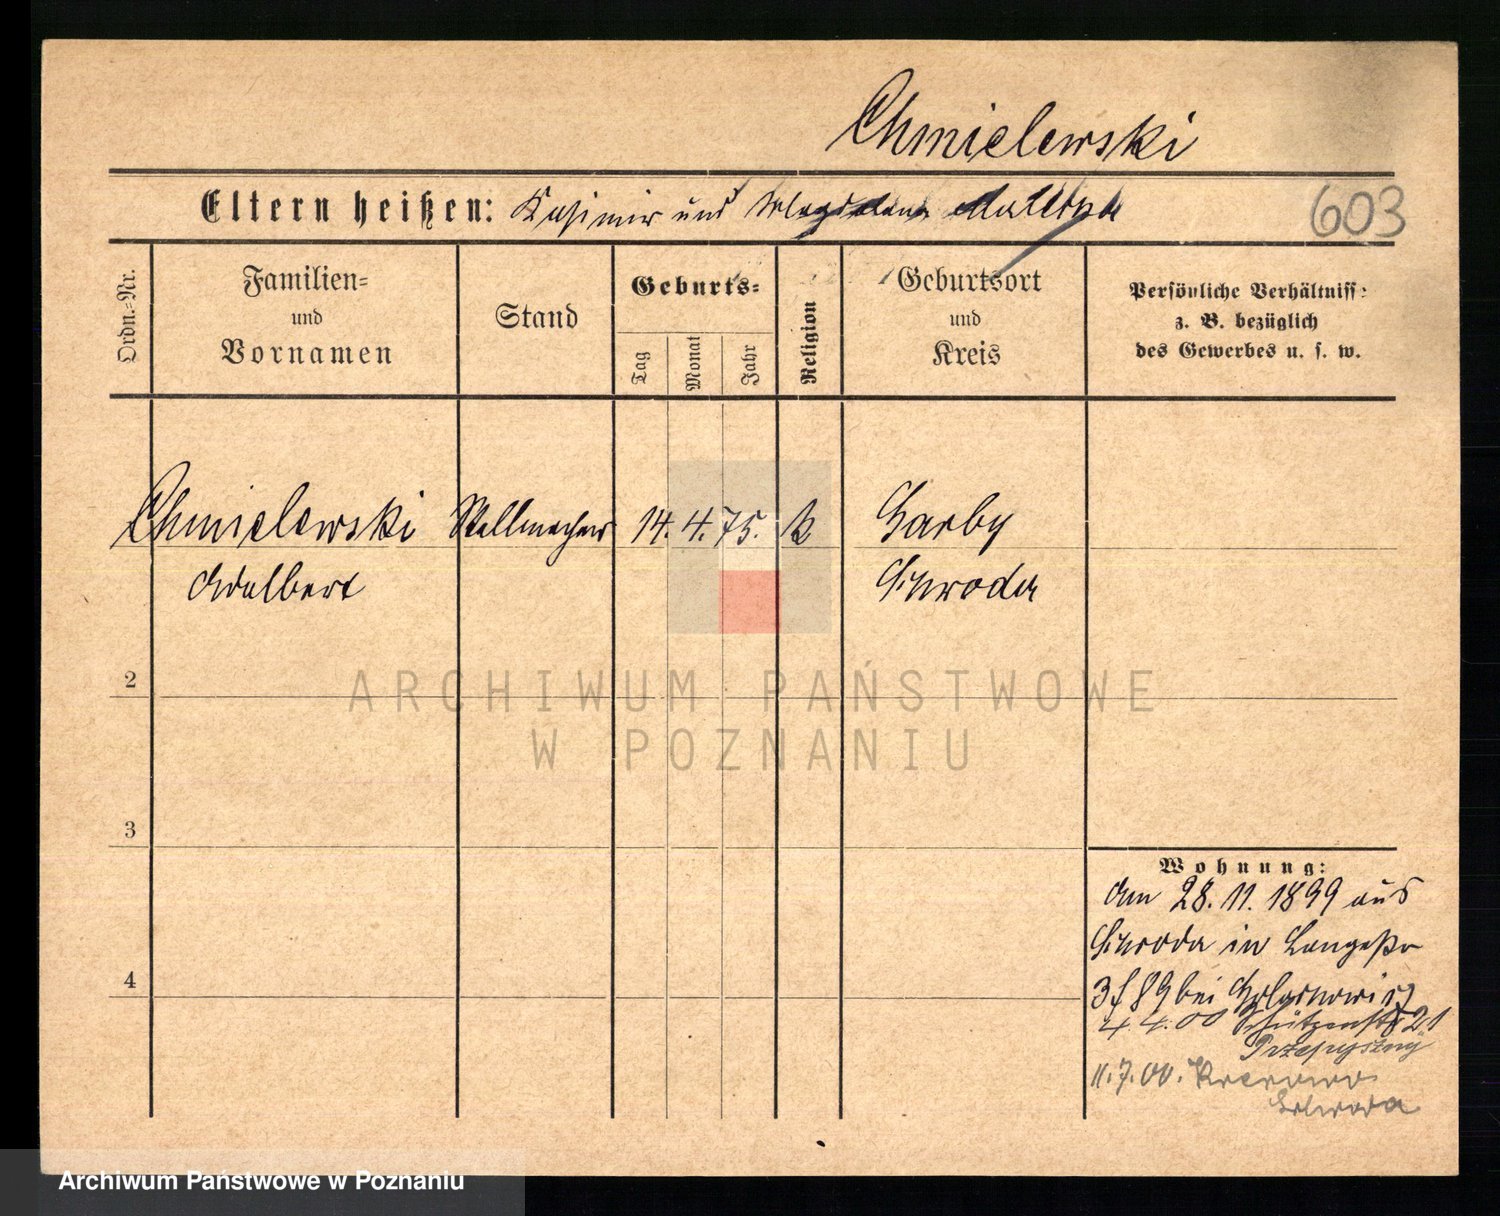 Chmielewski
Eltern heißen: Kasimir und Magdalena Matecka
603
Ordn.-Nr.
Familien-
und
Vornamen
Stand
Geburts-
Tag
Monat
Jahr
Religion
Geburtsort
und
Kreis
Persönliche Verhältniss-
z. B. bezüglich
des Gewerbes u. s. w.
Chmielewski Stellmacher 14. 4. 75. k Garby
Adalbert Schroda
2
ARCHIWUM PAŃSTWOWE
W POZNANIU
3
4
Wohnung:
Am 28. 11. 1899 aus
Schroda in Langestr
3 f 89 bei
4. 4. 00 Schützenstr 21
11. 7. 00.
Schroda
Archiwum Państwowe w Poznaniu